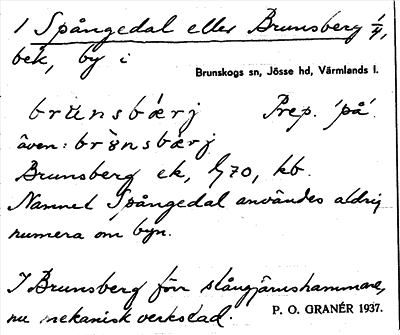 1 Spångedal eller Brunsberg 1/4,
bek, by i
Brunskogs sn, Jösse hd, Värmlands l.
Prep. 'på'.
även:
Brunsberg ek, kb.
Namnet Spångedal användes aldrig
numera om byn.
I Brunsberg förr stångjärnshammare,
nu mekanisk verkstad.
P. O. GRANÉR 1937.